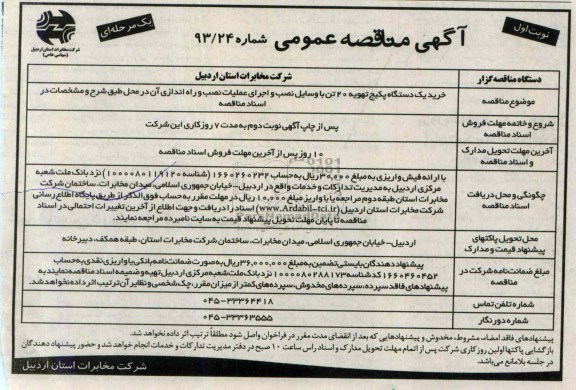 نوبت اول
آگهی مناقصه عمومی شماره ۹۳/۲۴
یک مرحله‌ای
شرکت مخابرات استان اردبیل
(سهامی خاص)
دستگاه مناقصه گزار
شرکت مخابرات استان اردبیل
موضوع مناقصه
خرید یک دستگاه پکیج تهویه ۲۰ تن با وسایل نصب و اجرای عملیات نصب و راه اندازی آن در محل طبق شرح و مشخصات در
اسناد مناقصه
شروع و خاتمه مهلت فروش
اسناد مناقصه
پس از چاپ آگهی نوبت دوم به مدت ۷ روز کاری این شرکت
آخرین مهلت تحویل مدارک
و اسناد مناقصه
۱۰ روز پس از آخرین مهلت فروش اسناد مناقصه
چگونگی و محل دریافت
اسناد مناقصه
با ارائه فیش واریزی به مبلغ ۳۰۰,۰۰۰ ریال به حساب ۱۶۶۰۲۶۰۲۳۲ (شناسه ۱۰۰۰۰۸۰۱۱۹۱۲۰) نزد بانک ملت شعبه
مرکزی اردبیل به مدیریت تدارکات و خدمات واقع در اردبیل- خیابان جمهوری اسلامی، میدان مخابرات، ساختمان شرکت
مخابرات استان طبقه دوم مراجعه یا با واریز مبلغ ۱۰,۰۰۰ ریال در مهلت مقرر به حساب فوق الذکر از طریق پایگاه اطلاع رسانی
شرکت مخابرات استان اردبیل (www.Ardabil-tci.ir) اسناد را دریافت و جهت اطلاع از آخرین تغییرات احتمالی در اسناد
مناقصه تا پایان مهلت تحویل پیشنهاد قیمت به سایت نامبرده مراجعه نمایند.
محل تحویل پاکتهای
پیشنهاد قیمت و مدارک
اردبیل- خیابان جمهوری اسلامی، میدان مخابرات، ساختمان شرکت مخابرات استان، طبقه همکف، دبیرخانه
مبلغ ضمانت نامه شرکت در
مناقصه
پیشنهاد دهندگان بایستی تضمین به مبلغ ۳۶,۰۰۰,۰۰۰ ریال به صورت ضمانت نامه بانکی یا واریزی نقدی به حساب
۱۶۶۰۴۶۰۴۵۲ کد شناسه ۱۰۰۰۰۸۰۲۸۸۱۷۳ نزد بانک ملت شعبه مرکزی اردبیل تهیه و ضمیمه اسناد مناقصه نمایند به
پیشنهادهای فاقد سپرده، سپرده‌های مخدوش، سپرده‌های کمتر از میزان مقرر، چک شخصی و نظایر آن ترتیب اثر داده نخواهد شد.
شماره تلفن تماس
۰۴۵-۳۳۳۶۴۴۱۸
شماره دورنگار
۰۴۵-۳۳۳۶۳۵۵۵
پیشنهادهای فاقد امضاء، مشروط، مخدوش و پیشنهادهایی که بعد از انقضای مدت مقرر در فراخوان واصل شود مطلقاً ترتیب اثر داده نخواهد شد.
بازگشایی پاکتها اولین روز کاری شرکت پس از اتمام مهلت تحویل مدارک و اسناد راس ساعت ۱۰ صبح در دفتر مدیریت تدارکات و خدمات انجام خواهد شد و حضور پیشنهاد دهندگان
در جلسه بلامانع می‌باشد.
شرکت مخابرات استان اردبیل